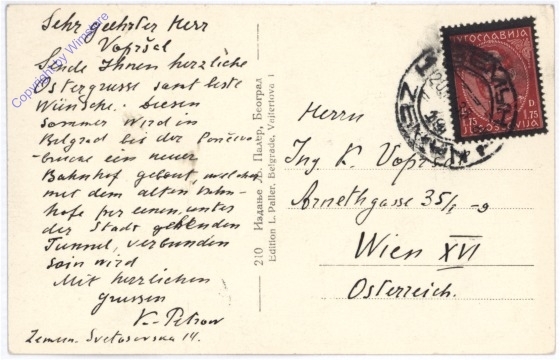 Sehr geehrter Herr
Vopršal
Sende Ihnen herzliche
Ostergrüsse samt beste
Wünsche. Diesen
Sommer wird in
Belgrad bis der Pančevo-
brücke ein neuer
Bahnhof gebaut, welcher
mit dem alten Bahn-
hofe per einen, unter
der Stadt gehenden
Tunnel, verbunden
sein wird
Mit herzlichen
grüssen
V. Petrow
Zemun. Svetosavska 14.
Copyright by Wimstore
210 Издање Л. Палер, Београд
Edition I. Paller, Belgrade, Vajfertova 1
ЈУГОСЛАВИЈА
1.75
D
1.75
JUGOSLAVIJA
ZEMUN
Herrn
Ing K. Vopršal
Arnethgasse 35/I - 9
Wien XVI
Österreich.